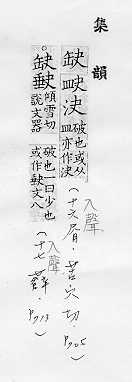 集韻
缺䀗决 破也或从皿亦作決
入聲(十六屑·苦穴切·P.705)
缺𡙇 傾雪切說文器破也一曰少也或作𡙇文八
入聲(十七薛·P.713)